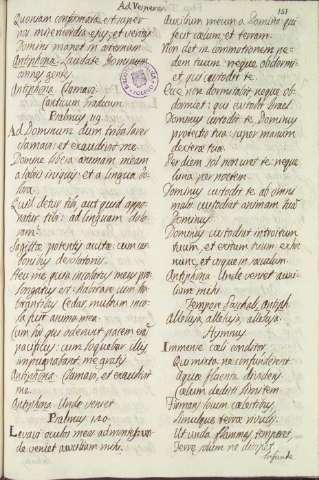 Ad Vesperas
151
Quoniam confirmata est super
nos misericordia ejus, et veritas
Domini manet in aeternum
Antiphona Laudate Dominum
omnes gentes
Antiphona Clamavi
Canticum Graduum
Psalmus 119
Ad Dominum dum tribularer
clamavi: et exaudivit me
Domine libera animam meam
a labiis iniquis: et a lingua do
losa.
Quid detur tibi, aut quid appo
natur tibi: ad linguam dolo
sam?
Sagittae potentis acutae: cum car
bonibus desolatoriis.
Heu me quia incolatus meus pro
longatus est: habitavi cum ha
bitantibus Cedar, multum inco
la fuit anima mea
Cum his qui oderunt pacem eram
pacificus: cum loquebar illis
impugnabant me gratis
Antiphona Clamavi, et exaudivit
me.
Antiphona Unde veniet
Psalmus 120.
Levavi oculos meos ad montes: un
de veniet auxilium mihi.
Auxilium meum a Domino qui
fecit coelum, et terram.
Non det in commotionem pe
dem tuum: neque obdormi
et qui custodit te.
Ecce non dormitabit neque ob
dormiet: qui custodit Israel.
Dominus custodit te, Dominus
protectio tua: super manum
dexteram tuam
Per diem sol non uret te: neque
luna per noctem.
Dominus custodit te ab omni
malo: custodiat animam tuam
Dominus
Dominus custodiat introitum
tuum, et exitum tuum: ex hoc
nunc, et usque in saeculum.
Antiphona Unde veniet auxi
lium mihi.
Tempore Paschali, antiph.
Alleluya, alleluya, alleluya.
Hymnus
Immense coeli conditor
Qui mixta ne confunderent
Aquae fluenta dividens
Coelum dedisti limitem
Firmans locum coelestibus
Simulque terrae rivulis
Ut unda flammas temperet,
Terrae solum ne dissipet
Infunde